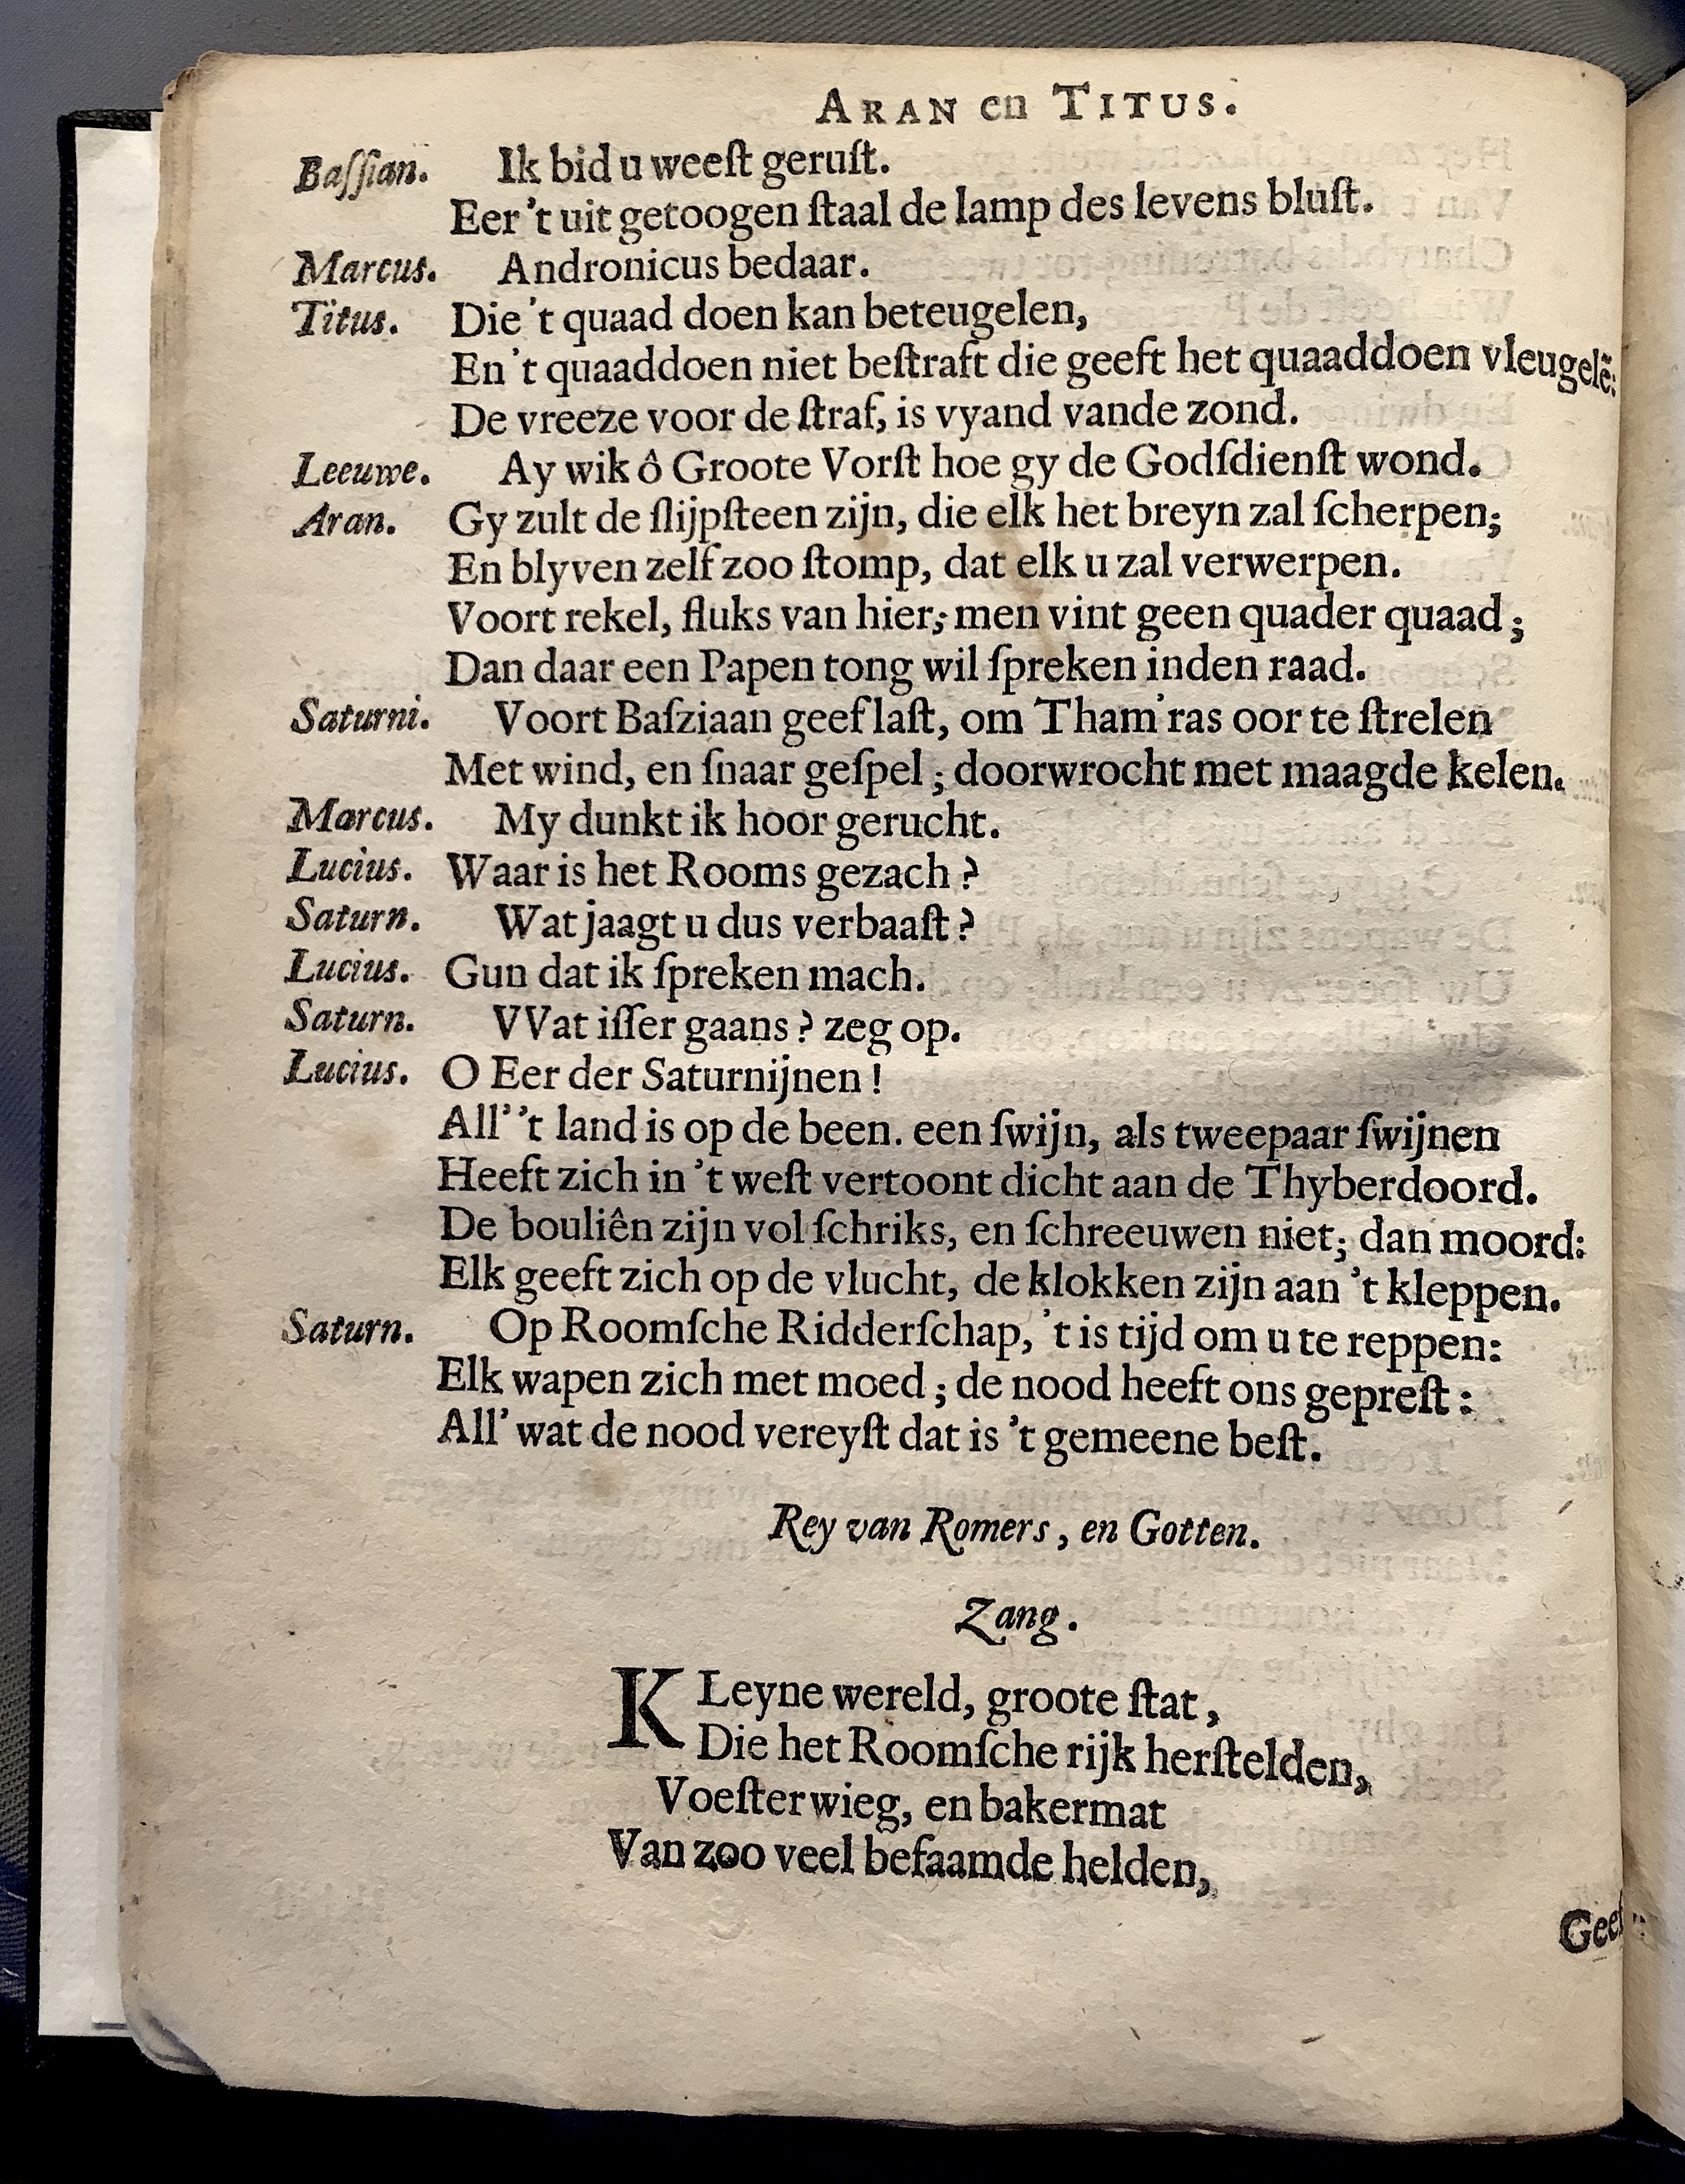 ARAN en TITUS.
Baſſian. Ik bid u weeſt geruſt.
Eer 't uit getoogen ſtaal de lamp des levens bluſt.
Marcus. Andronicus bedaar.
Titus. Die 't quaad doen kan beteugelen,
En 't quaaddoen niet beſtraft die geeft het quaaddoen vleugelē:
De vreeze voor de ſtraf, is vyand vande zond.
Leeuwe. Ay wik ô Groote Vorſt hoe gy de Godſdienſt wond.
Aran. Gy zult de ſlijpſteen zijn, die elk het breyn zal ſcherpen;
En blyven zelf zoo ſtomp, dat elk u zal verwerpen.
Voort rekel, fluks van hier; men vint geen quader quaad;
Dan daar een Papen tong wil ſpreken inden raad.
Saturni. Voort Baſziaan geef laſt, om Tham'ras oor te ſtrelen
Met wind, en ſnaar geſpel; doorwrocht met maagde kelen.
Marcus. My dunkt ik hoor gerucht.
Lucius. Waar is het Rooms gezach?
Saturn. Wat jaagt u dus verbaaſt?
Lucius. Gun dat ik ſpreken mach.
Saturn. VVat iſſer gaans? zeg op.
Lucius. O Eer der Saturnijnen!
All' 't land is op de been. een ſwijn, als tweepaar ſwijnen
Heeft zich in 't weſt vertoont dicht aan de Thyberdoord.
De bouliên zijn vol ſchriks, en ſchreeuwen niet; dan moord:
Elk geeft zich op de vlucht, de klokken zijn aan 't kleppen.
Saturn. Op Roomſche Ridderſchap, 't is tijd om u te reppen:
Elk wapen zich met moed; de nood heeft ons gepreſt:
All' wat de nood vereyſt dat is 't gemeene beſt.
Rey van Romers, en Gotten.
Zang.
KLeyne wereld, groote ſtat,
Die het Roomſche rijk herſtelden,
Voeſterwieg, en bakermat
Van zoo veel befaamde helden,